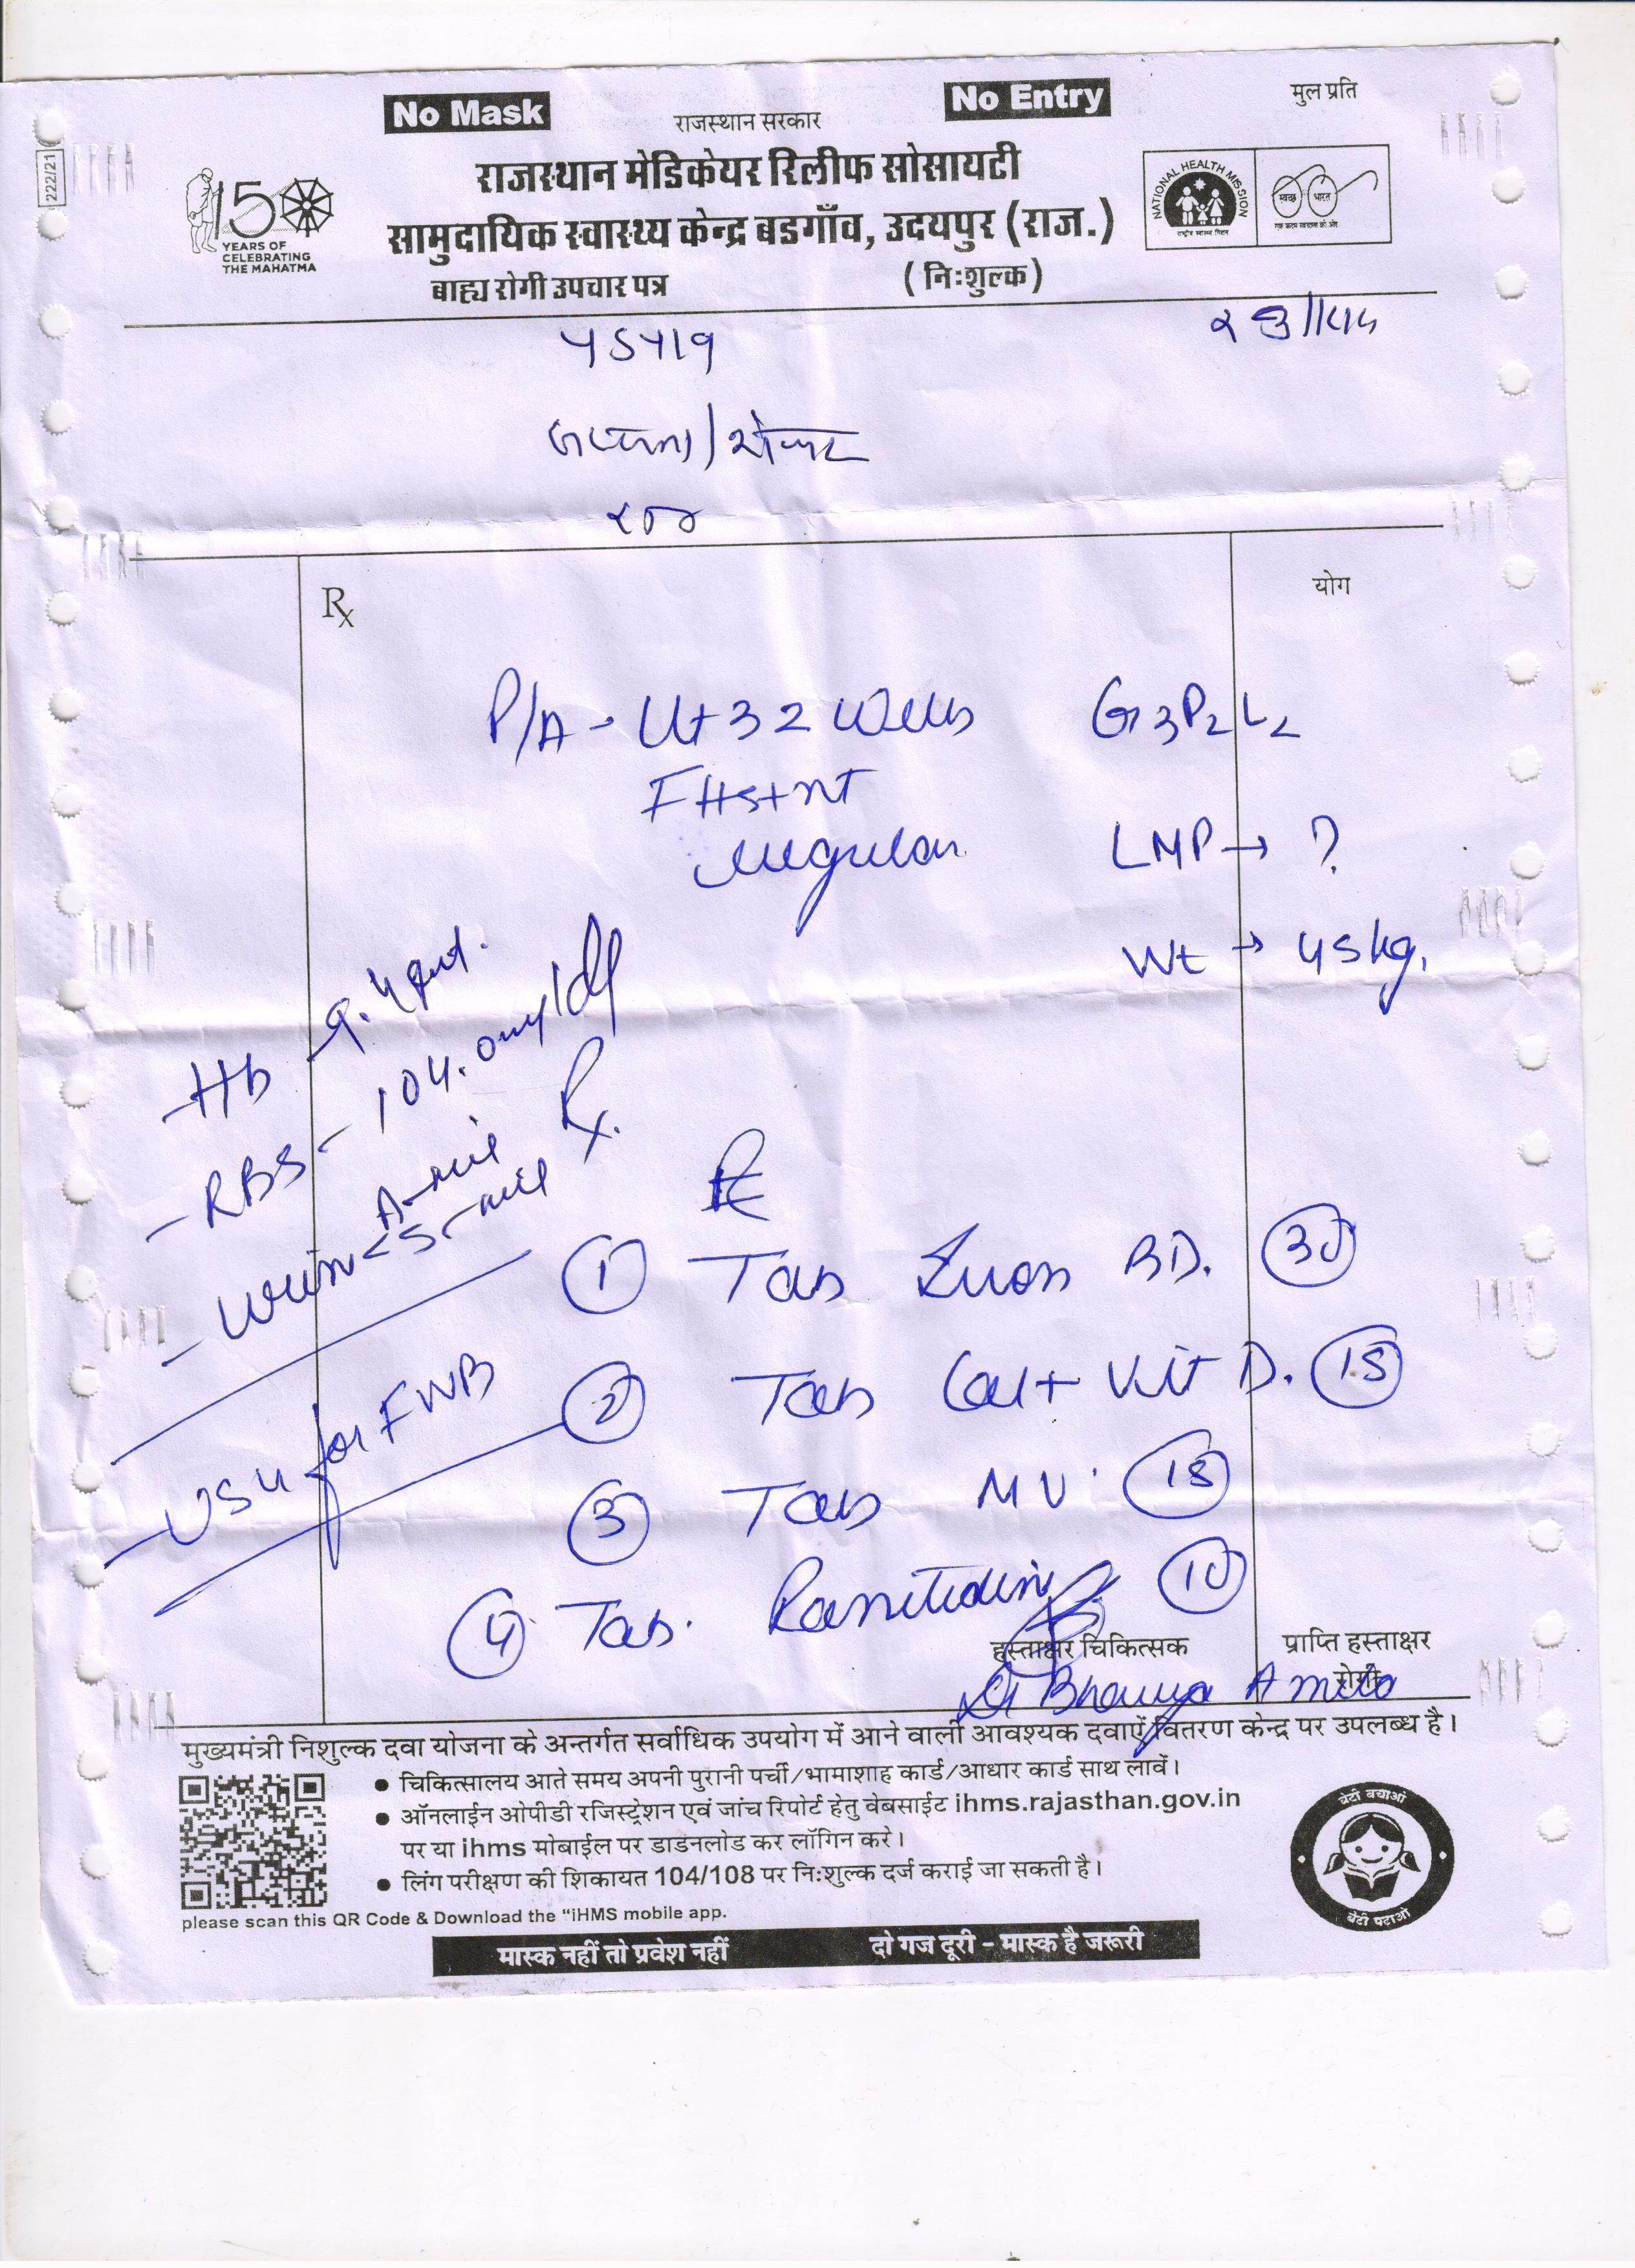 222/21
No Mask
No Entry
मुल प्रति
राजस्थान सरकार
राजस्थान मेडिकेयर रिलीफ सोसायटी
सामुदायिक स्वास्थ्य केन्द्र बडगाँव, उदयपुर (राज.)
बाह्य रोगी उपचार पत्र
(निःशुल्क)
150
YEARS OF
CELEBRATING
THE MAHATMA
NATIONAL HEALTH MISSION
राष्ट्रीय स्वास्थ्य मिशन
स्वच्छ भारत
एक कदम स्वच्छता की ओर
Rx
योग
P/A - Ut 32 weeks
G3P2L2
FHS +nt
regular
LMP → ?
Wt → 45 kg.
- Hb - 9.4 gm%.
- RBS - 104.0 mg/dl
- Urine < A - nil
S - nil
Rx.
① Tab Iron BD. 30
- USG for FWB
② Tab Cal + Vit D. 15
③ Tab MV. 15
④ Tab. Ranitidin 10
हस्ताक्षर चिकित्सक
प्राप्ति हस्ताक्षर
रोगी
Dr Bhavya Ameta
मुख्यमंत्री निशुल्क दवा योजना के अन्तर्गत सर्वाधिक उपयोग में आने वाली आवश्यक दवाऐं वितरण केन्द्र पर उपलब्ध है।
● चिकित्सालय आते समय अपनी पुरानी पर्ची/भामाशाह कार्ड/आधार कार्ड साथ लावें।
● ऑनलाईन ओपीडी रजिस्ट्रेशन एवं जांच रिपोर्ट हेतु वेबसाईट ihms.rajasthan.gov.in
पर या ihms मोबाईल पर डाडनलोड कर लॉगिन करे।
● लिंग परीक्षण की शिकायत 104/108 पर निःशुल्क दर्ज कराई जा सकती है।
please scan this QR Code & Download the "iHMS mobile app.
बेटी बचाओ
बेटी पढाओ
मास्क नहीं तो प्रवेश नहीं
दो गज दूरी - मास्क है जरूरी